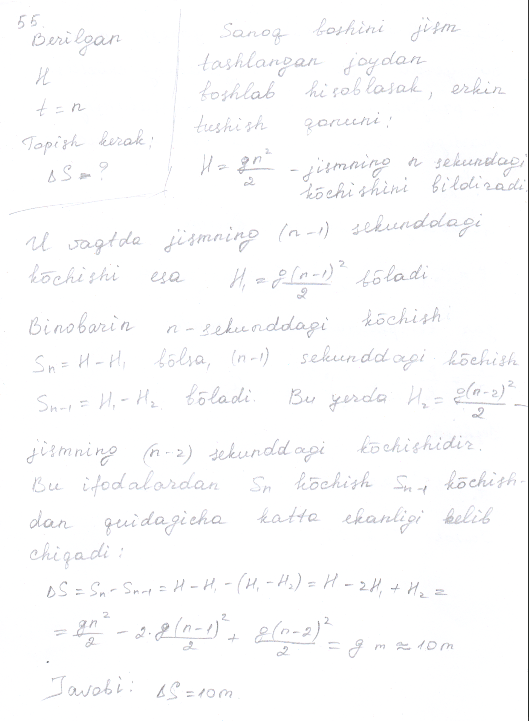 55.
Berilgan
H
t = n
Topish kerak:
ΔS = ?
Sanoq boshini jism
tashlangan joydan
boshlab hisoblasak, erkin
tushish qonuni:
H = gn²/2 - jismning n sekundagi
kōchishini bildiradi
U vaqtda jismning (n-1) sekunddagi
kōchishi esa H₁ = g(n-1)²/2 bōladi
Binobarin n-sekunddagi kōchish
Sₙ = H - H₁ bōlsa, (n-1) sekunddagi kōchish
Sₙ₋₁ = H₁ - H₂ bōladi. Bu yerda H₂ = g(n-2)²/2 -
jismning (n-2) sekunddagi kōchishidir.
Bu ifodalardan Sₙ kōchish Sₙ₋₁ kōchish-
dan quidagicha katta ekanligi kelib
chiqadi:
ΔS = Sₙ - Sₙ₋₁ = H - H₁ - (H₁ - H₂) = H - 2H₁ + H₂ =
= gn²/2 - 2·g(n-1)²/2 + g(n-2)²/2 = g m ≈ 10m
Javobi: ΔS = 10m